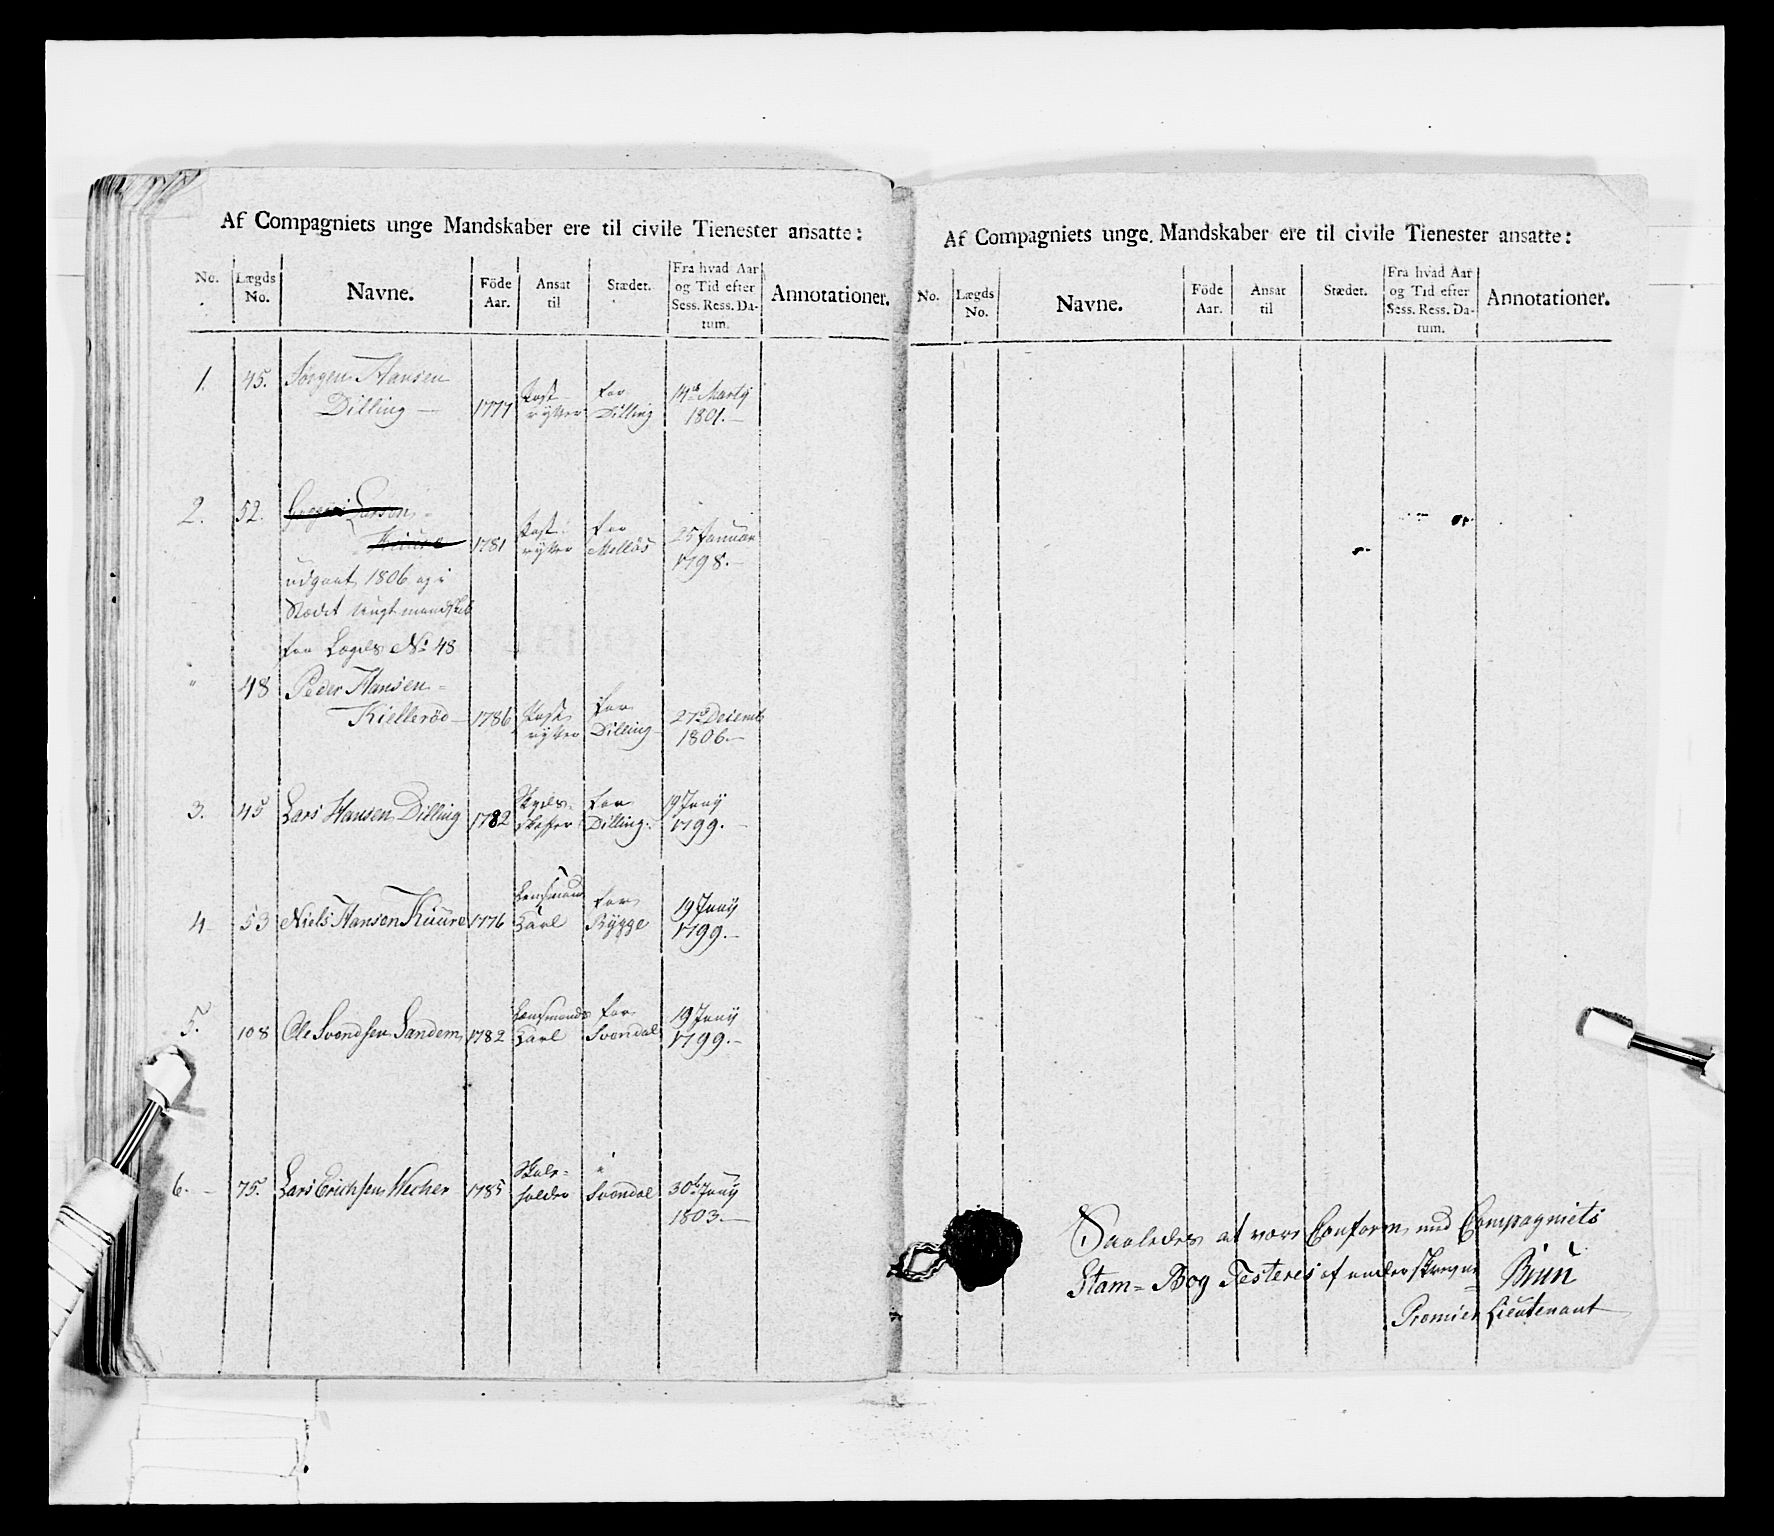 Af Compagniets unge Mandskaber ere til civile Tienester ansatte:
No. Lægds No. Navne. Föde Aar. Ansat til Stædet. Fra hvad Aar og Tid efter Sess. Ress. Datum. Annotationer.
1. 45. Jörgen Hansen
Dilling — 1777 Post rytter for Dilling 14de Martij 1801.—
2. 52. Larsen
Kuure 1781 Post rytter for Mellös 25 Januar 1798.—
udgaaet 1806 og i
Stædet mandskab
for Lægds No 48
" 48 Peder Hansen
Kielleröd — 1786 Post rytter for Dilling 27de Decemb 1806.—
3. 45 Lars Hansen Dilling 1782 Skyds- skaffer for Dilling. 19 Junij 1799.—
4 53 Niels Hansen Kuure 1776 Lensmands Karl for Rygge 19 Junij 1799.—
5. 108 Ole Svendsen Sandem 1782 Lensmands Karl for Svendal 19 Junij 1799.—
6. 75. Lars Erichsen 1785 Skole- holder i Svendal 30te Junij 1803.—
Af Compagniets unge Mandskaber ere til civile Tienester ansatte:
No. Lægds No. Navne. Föde Aar. Ansat til Stædet. Fra hvad Aar og Tid efter Sess. Ress. Datum. Annotationer.
Saaledes at være Conform med Compagniets
Stam-Bog Testeres af underskrevne Brun
Premier Lieutenant